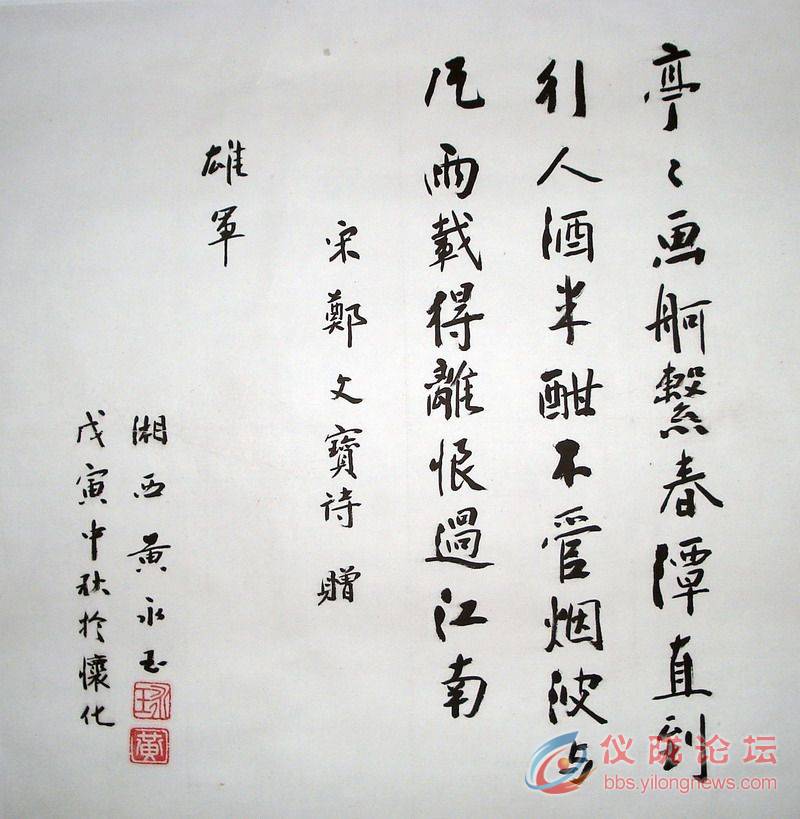 亭〻画舸繫春潭直到
行人酒半酣不管烟波与
风雨載得離恨過江南
宋鄭文寶诗 贈
雄軍
湘西黄永玉
戊寅中秋於懷化
永玉
黄
仪陇论坛
bbs.yilongnews.com